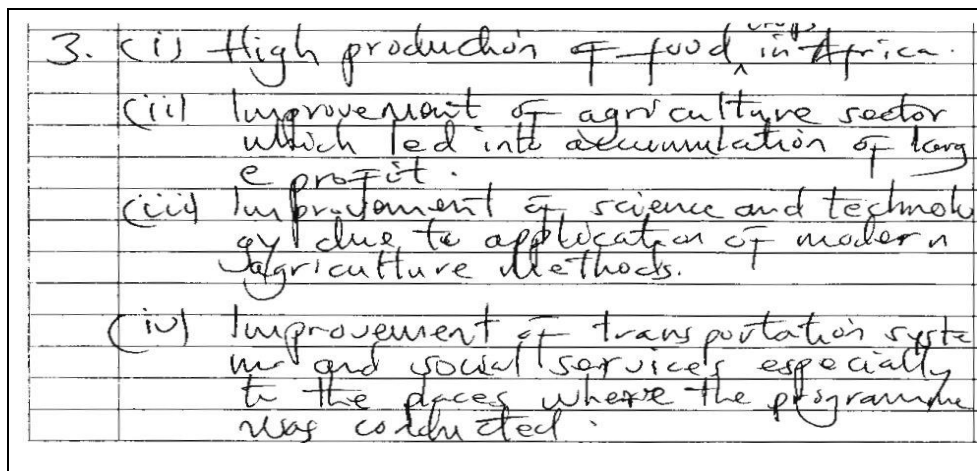 crops
3. (i) High production of food ^ in Africa.
(ii) Improvement of agriculture sector
which led into accumulation of larg
e profit.
(iii) Improvement of science and technolo
gy due to application of modern
agriculture Methods.
(iv) Improvement of transportation syste
m and social services especially
to the places where the programme
was conducted.